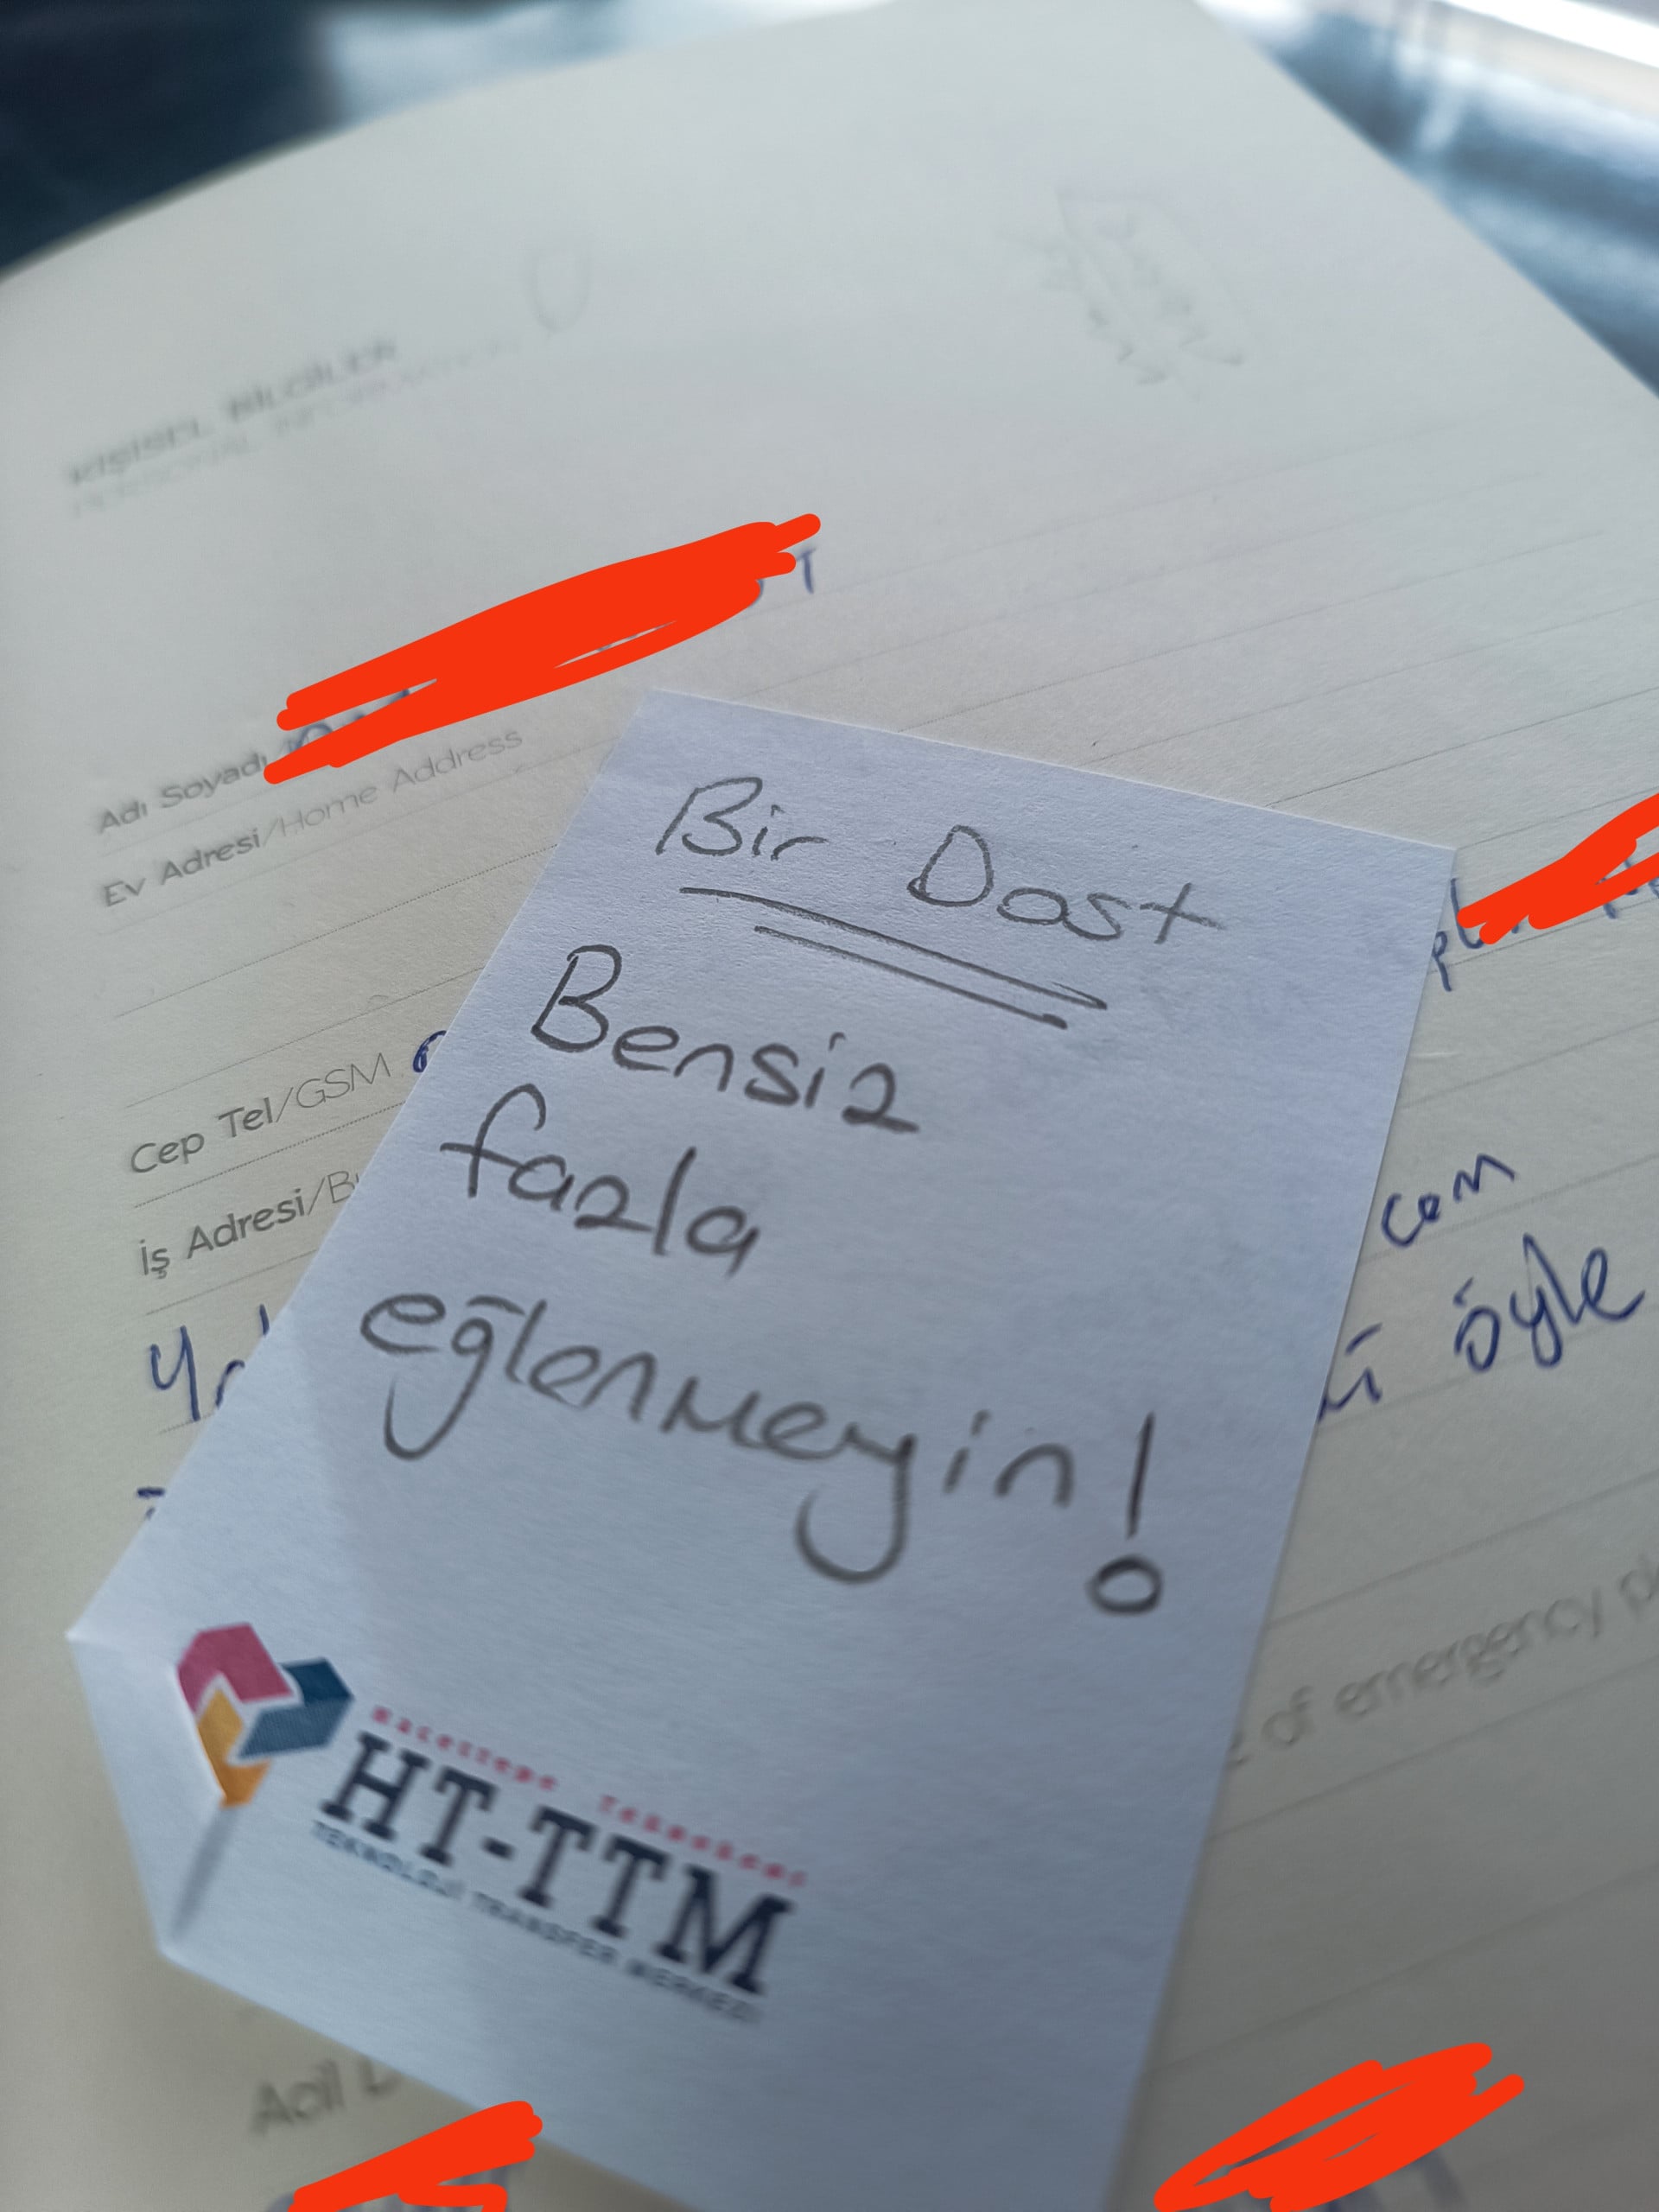 KİŞİSEL BİLGİLER
PERSONAL INFORMATION
Adı Soyadı
Ev Adresi/Home Address
Cep Tel/GSM
İş Adresi/
com
öyle
of emergency
Acil
Bir Dost
Bensiz
fazla
eğlenmeyin!
Hacettepe Teknokent
HT-TTM
TEKNOLOJİ TRANSFER MERKEZİ